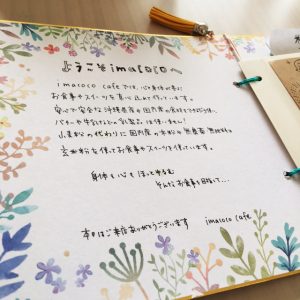 ようこそimacocoへ
imacoco cafeでは、心と身体が喜ぶ
お食事やスイーツを真心込めて作っています。
安心で安全な沖縄県産や国内産の食材をできるだけ使い、
バターや牛乳などの乳製品は使いません!
小麦粉の代わりに国内産の米粉や無農薬無肥料の
玄米粉を使ってお食事やスイーツを作っています。
身体も心もほっとゆるむ
そんなお食事を目指して…
本日はご来店ありがとうございます imacoco cafe